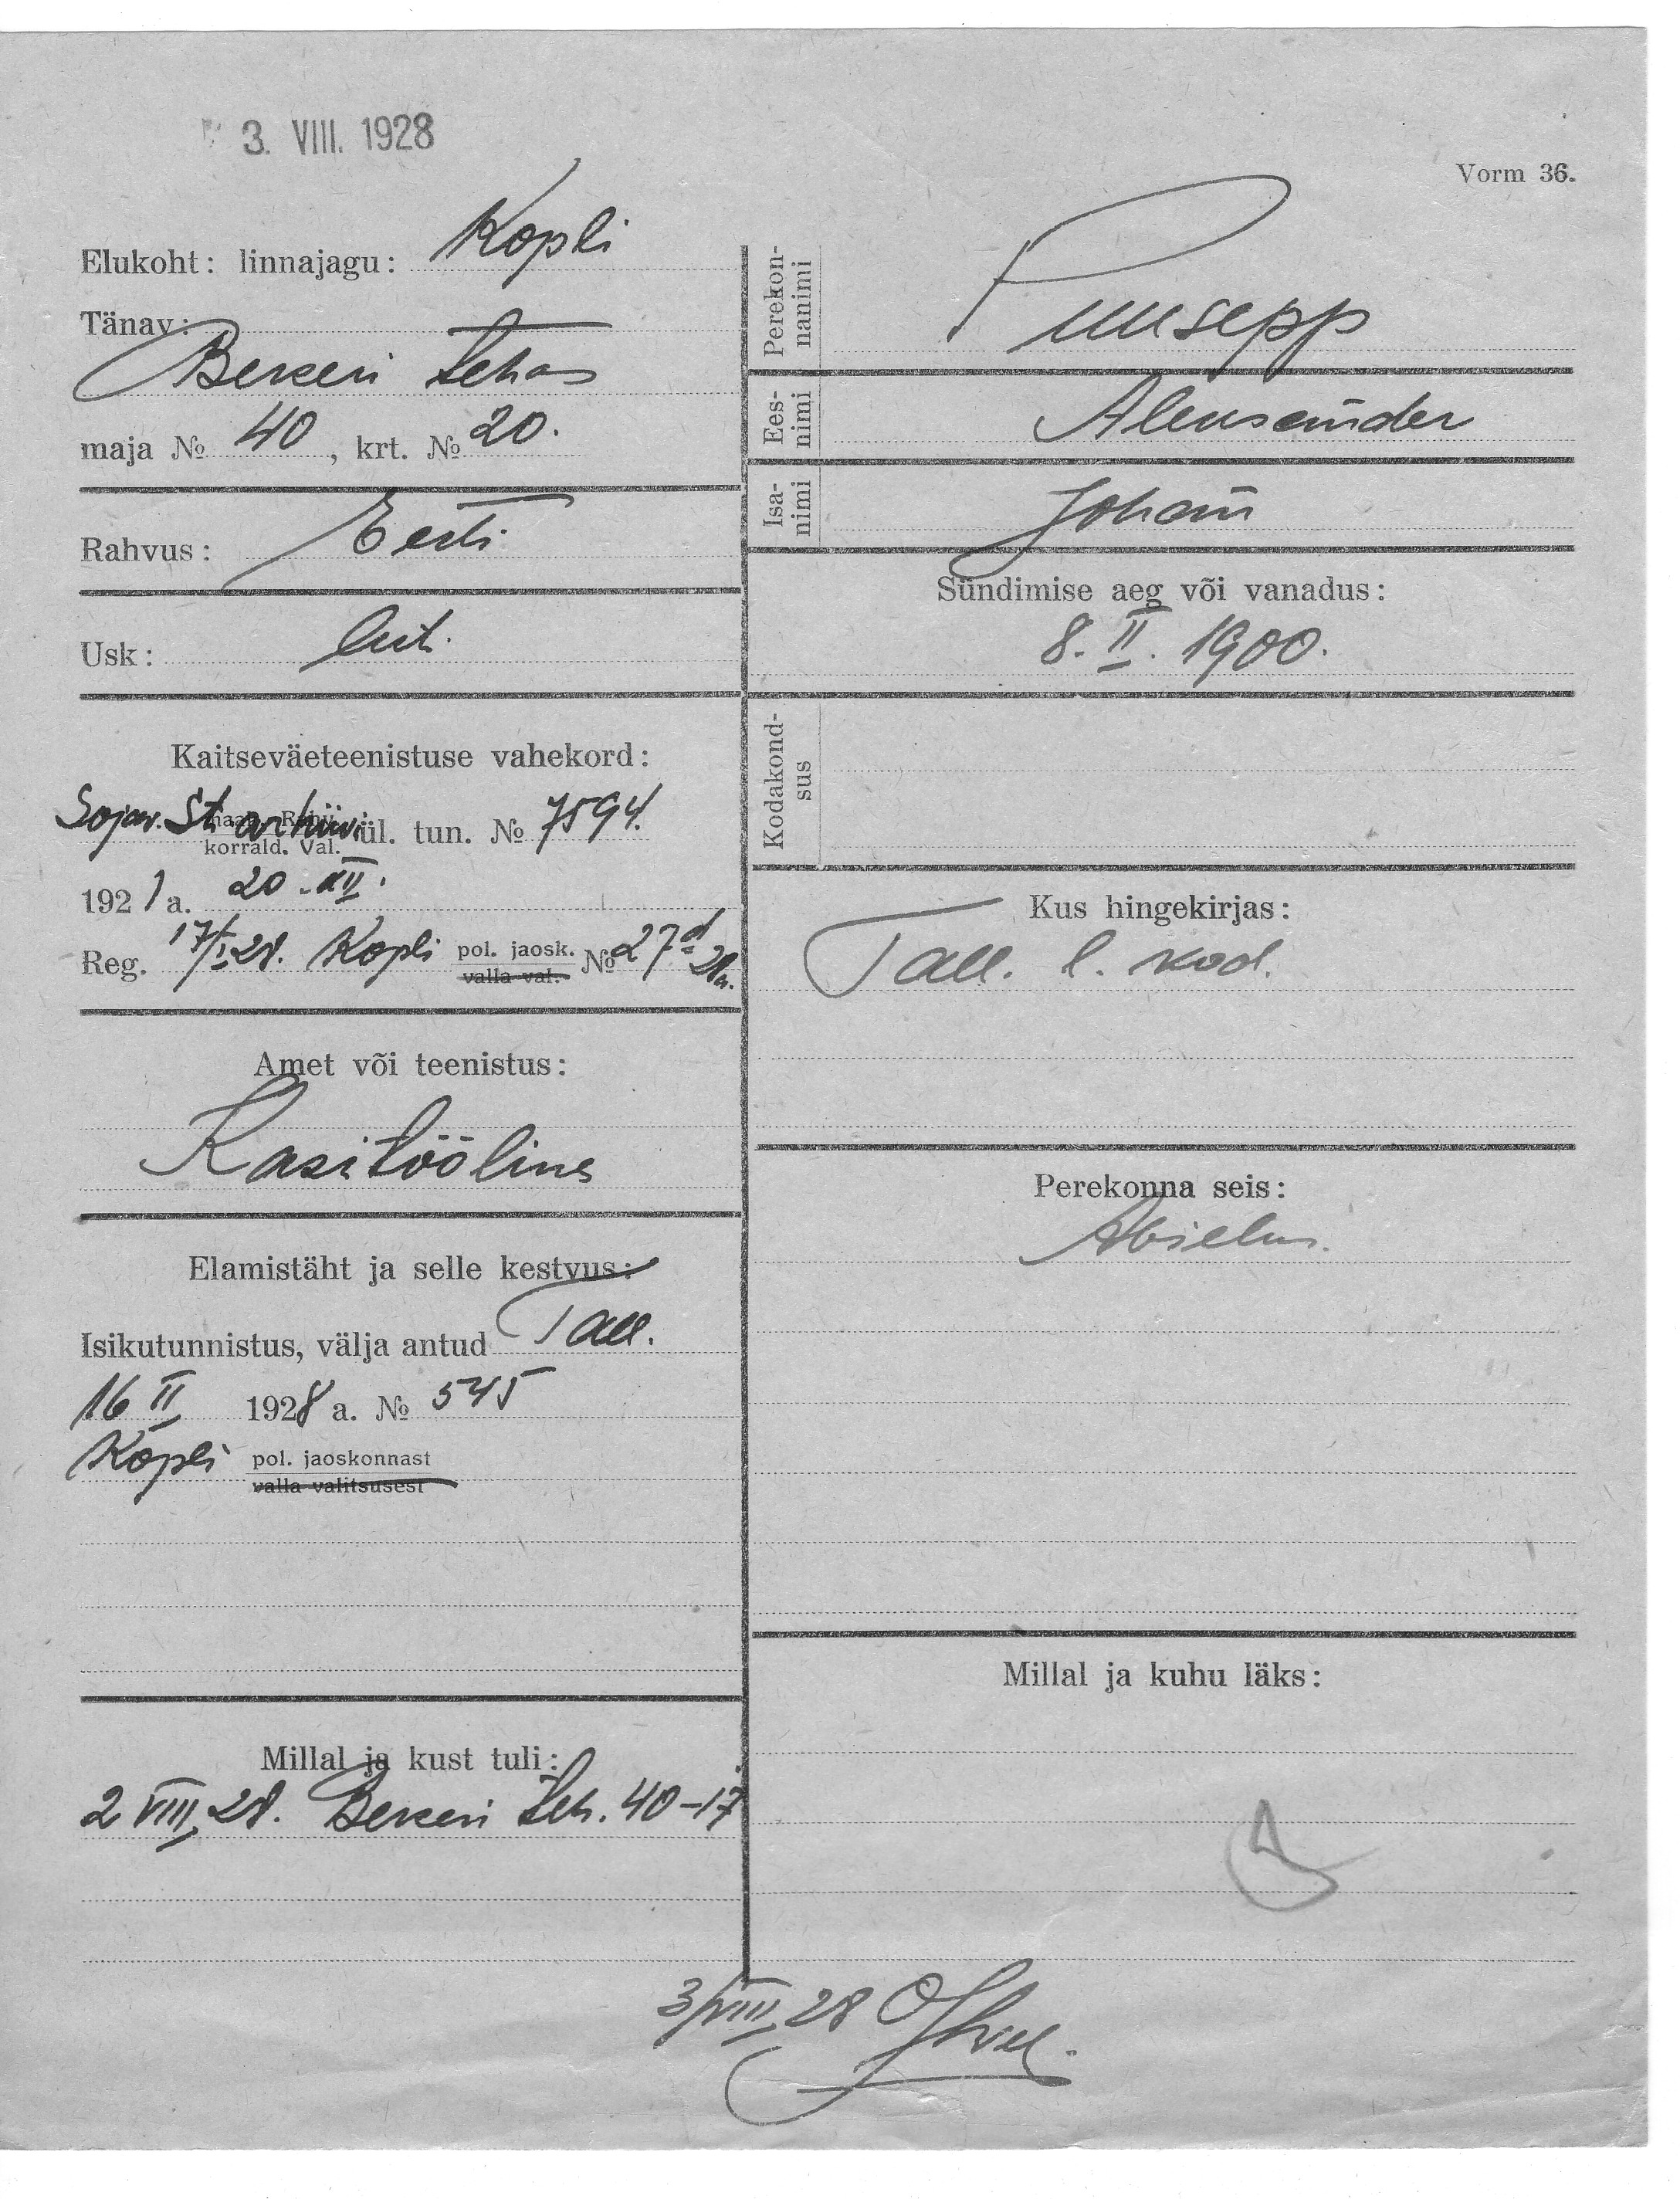 3. VIII. 1928
Vorm 36.
Elukoht: linnajagu: Kopli
Tänav:
Bekeri tehas
maja № 40, krt. № 20.
Rahvus: Eesti
Usk: lut.
Kaitseväeteenistuse vahekord:
Sojav. St. arhiivi ül. tun. № 7594.
korrald. Val.
1921 a. 20. XII.
Reg. 17/I 28. Kopli pol. jaosk. № 27d
valla val. 28a.
Amet või teenistus:
Kasitööline
Elamistäht ja selle kestvus:
Isikutunnistus, välja antud Tall.
16 II 1928 a. № 545
Kopli pol. jaoskonnast
valla valitsusest
Millal ja kust tuli:
2 VIII 28. Bekeri teh. 40-17
Perekon-
nanimi
Puusepp
Ees-
nimi
Aleksander
Isa-
nimi
Johan
Sündimise aeg või vanadus:
8. II. 1900.
Kodakond-
sus
Kus hingekirjas:
Tall. l. kod.
Perekonna seis:
Abielus.
Millal ja kuhu läks:
3/VIII 28